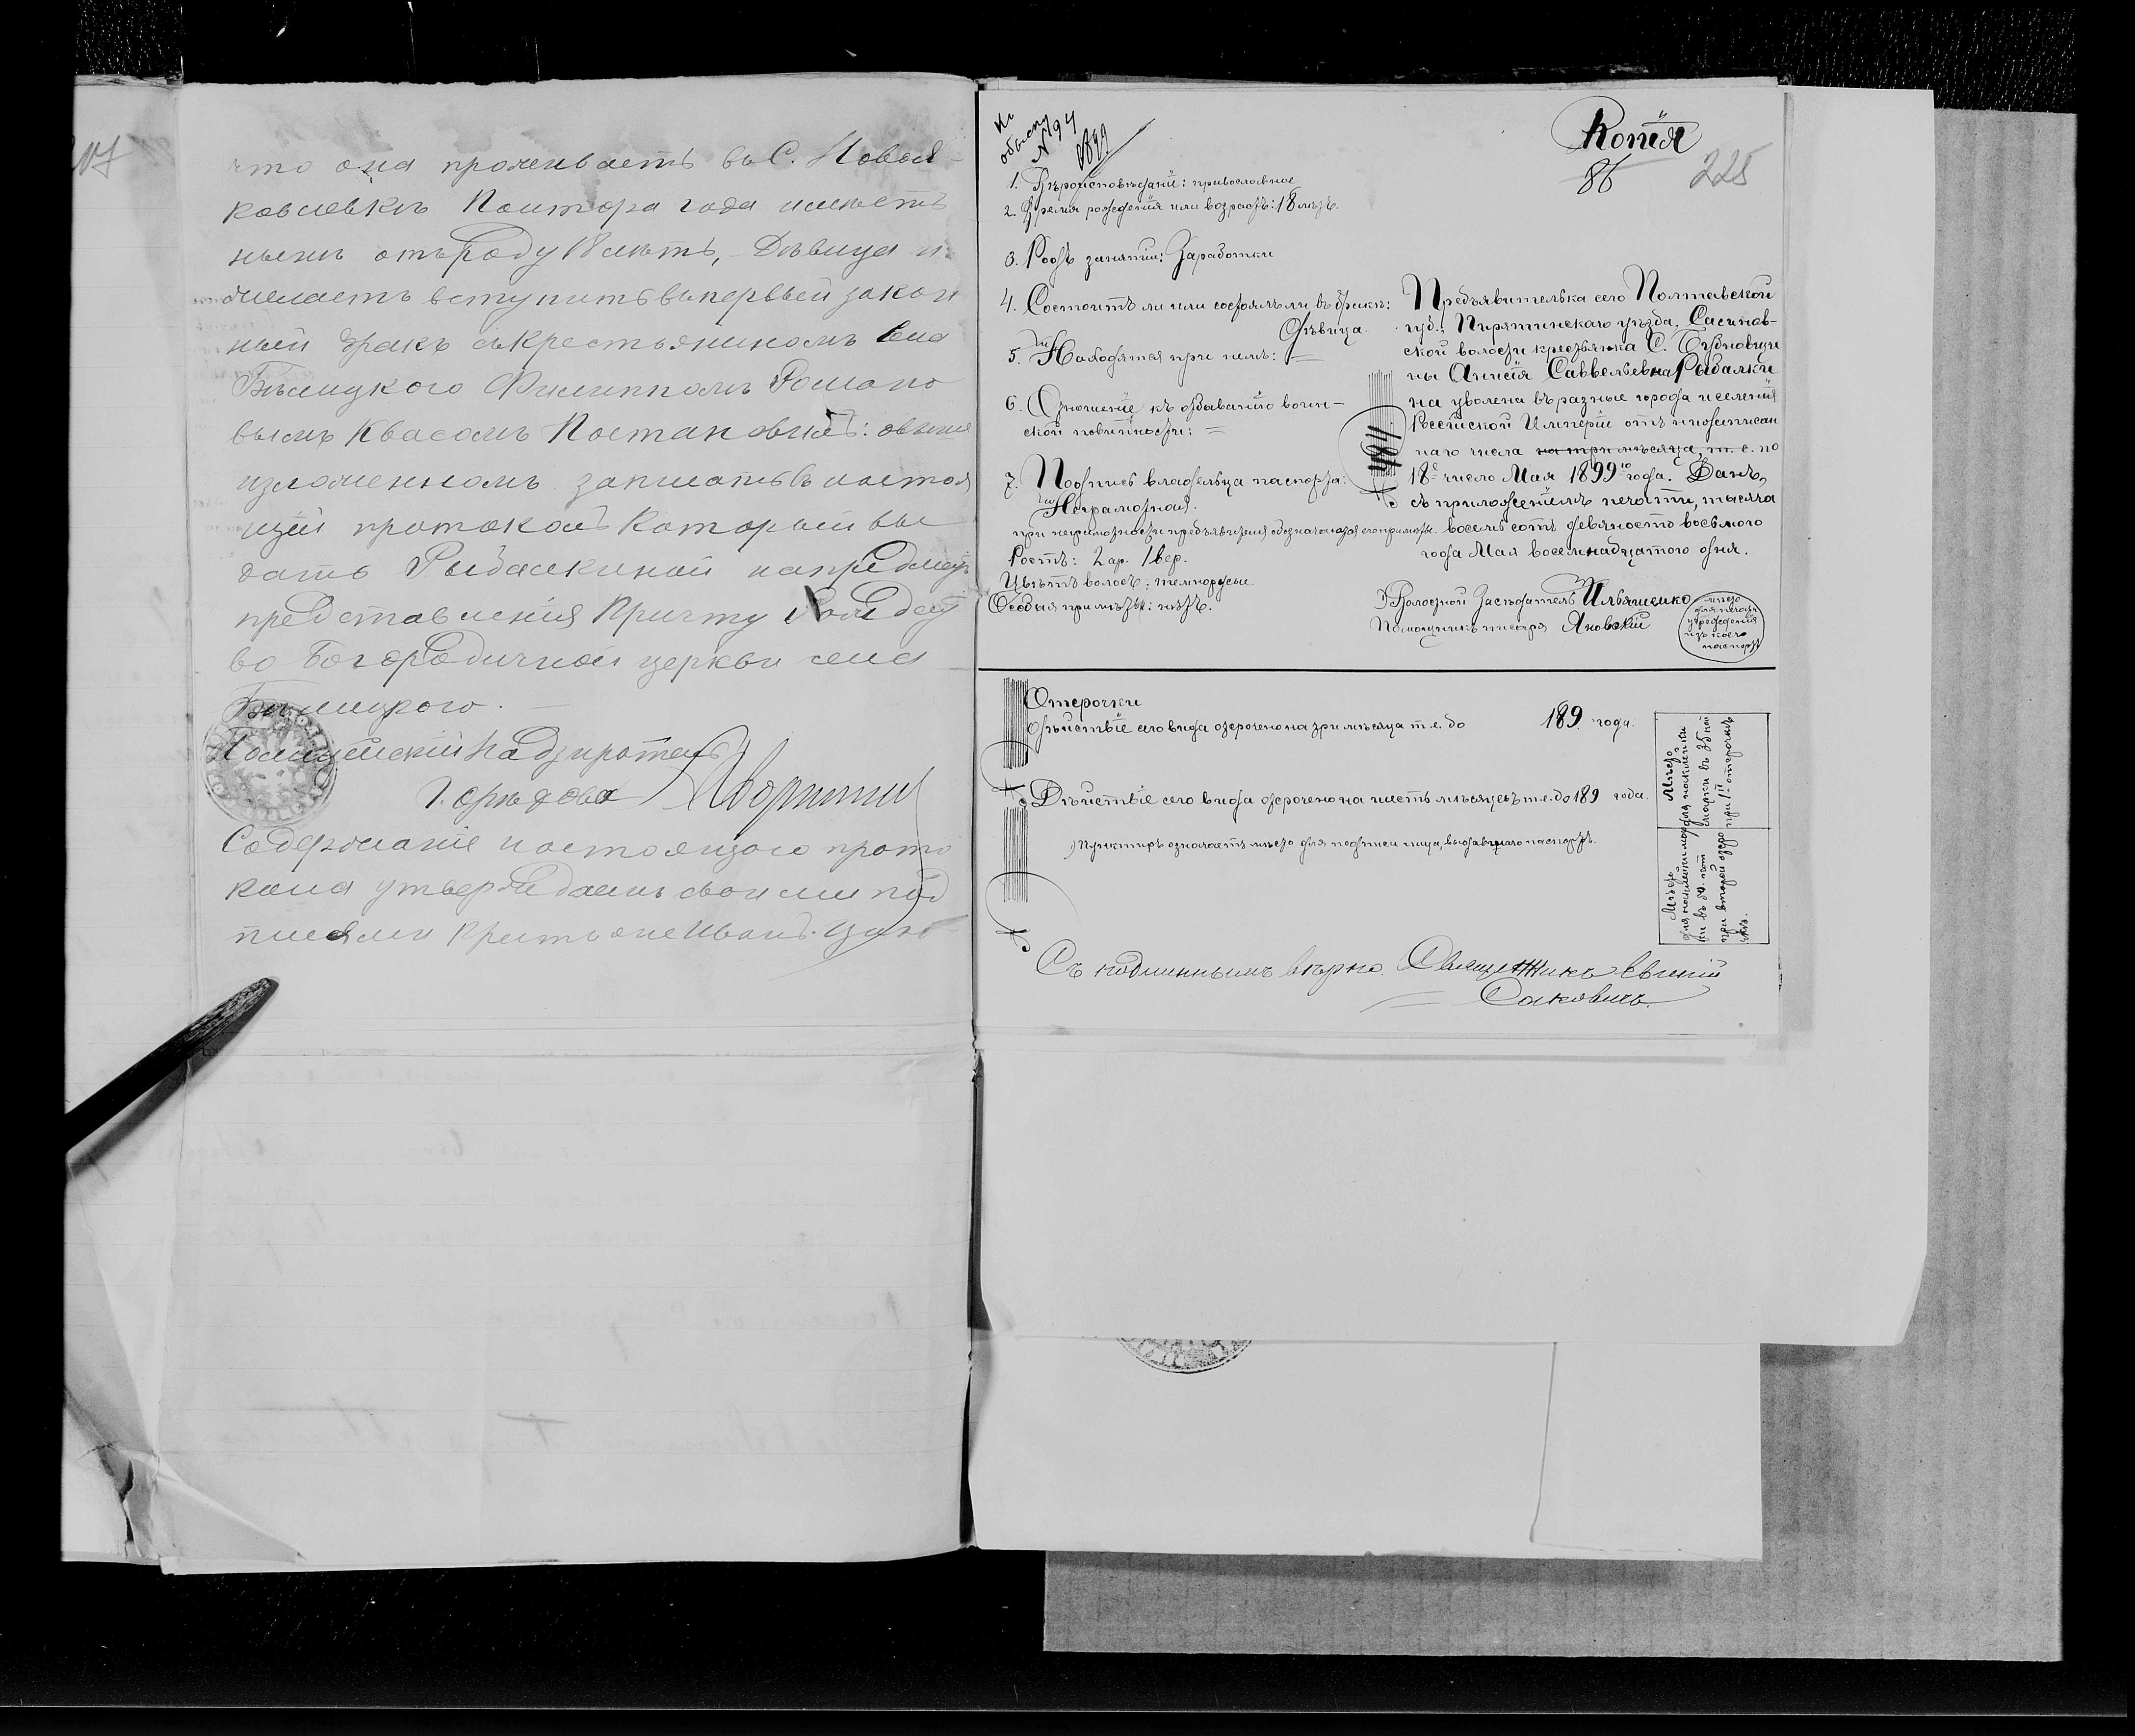 что она проживаетъ въ С. Новой-
ковлевкѣ Полтора года имѣетъ
нынѣ отъ роду 18 лѣтъ, Дѣвица и
желаетъ вступить въ первый закон
ный бракъ съ крестьяниномъ села
Бѣлицкого Филиппомъ Романо
вымъ Квасомъ Постановилъ: о выше
изложенномъ записать въ настоя
щій протоколъ который вы
дать Рыбалкиной на предметъ
представленія Причту Рождест
во Богородичной церкви села
Бѣлицкого.
Полицейскій Надзиратель
Содержаніе настоящаго прото
кола утверждаемъ своими под
писями крестьяне Иванъ
Къ
обыску
N 94
1899
Копія
86
225
1. Вѣроисповѣданіе: православное
2. Время рожденія или возрастъ: 18 лѣтъ.
3. Родъ занятій: Заработки
4. Состоитъ ли или состоялъ ли въ бракѣ:
Дѣвица.
5. Находятся при немъ: =
6. Отношеніе къ отбыванію воин-
ской повинности: =
7. Подпись владѣльца паспорта:
Неграмотная.
при неграмотности предъявителя обозначаются его примѣты.
Ростъ: 2 ар. 1 вер.
Цвѣтъ волосъ: темнорусые
Особыя примѣты: нѣтъ.
Предъявителька сего Полтавской
губ., Пирятинскаго уѣзда, Сасинов-
ской волости крестьянка С.
ны Анисія Саввельевна Рыбалки
на уволена въ разные города и селенія
Россійской Имперіи отъ нижеписан
наго числа на три мѣсяца, т. е. по
18е число Мая 1899го года. Данъ,
съ приложеніемъ печати, тысяча
восемьсотъ девяносто восьмого
года Мая восемнадцатого дня.
Волостной Засѣдатель Ильяшенко
Помощникъ писаря Яновскій
мѣсто
для печати
учрежденія
изъ коего
паспортъ
484
Отсрочки
Дѣйствіе сего вида отсрочено на три мѣсяца т.е. до 189 года.
Дѣйствіе сего вида отсрочено на шесть мѣсяцевъ т.е. до 189 года.
) Пунктиръ означаетъ мѣсто для подписи лица, выдавшаго паспортъ.
Мѣсто
для наклейки
марки въ
при 1й отсрочкѣ
Мѣсто
для наклейки мар
ки въ
при второй отсро
чкѣ.
Съ подлиннымъ вѣрно. Священникъ Евгеній
Саковичъ.